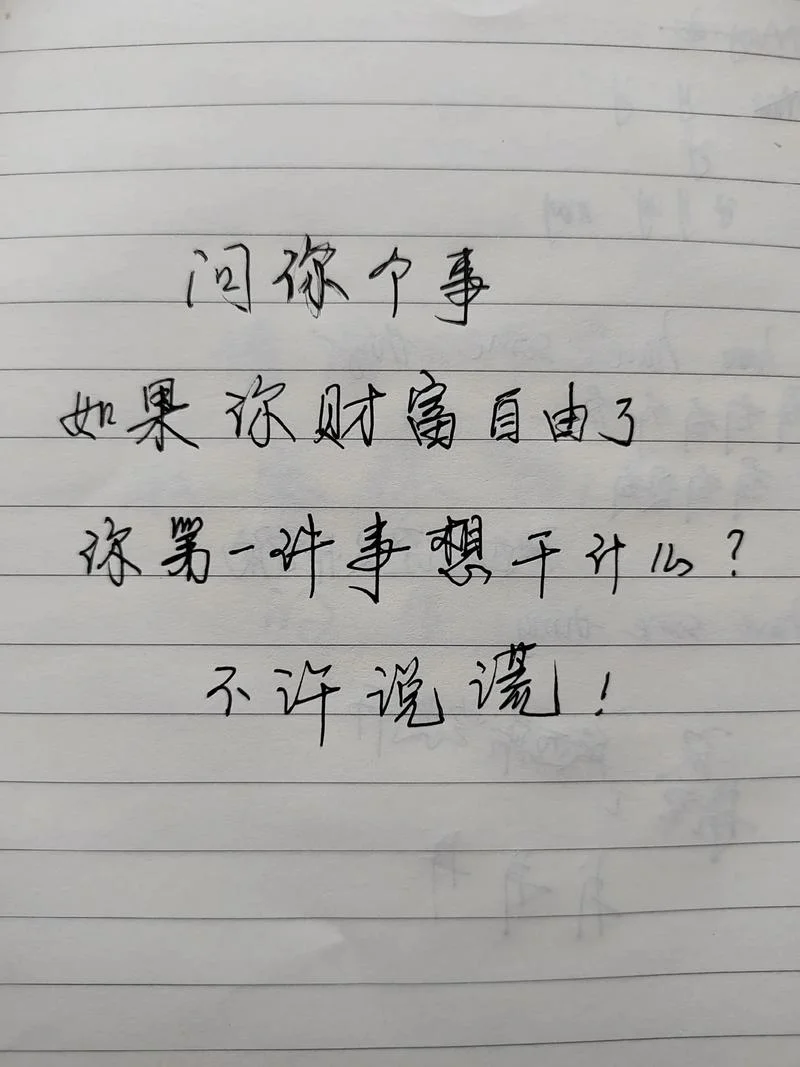 问你个事
如果你财富自由了
你第一件事想干什么？
不许说谎！